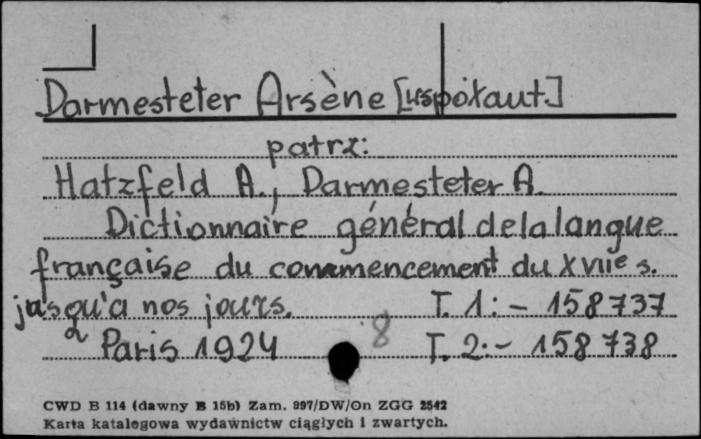 Darmesteter Arsène [współaut.]
patrz:
Hatzfeld A., Darmesteter A.
Dictionnaire général de la langue
française du commencement du XVIIe s.
jusqu'a nos jours. T. 1: - 158737
Paris 1924 8 T. 2: - 158738
CWD B 114 (dawny B 15b) Zam. 997/DW/On ZGG 2542
Karta katalogowa wydawnictw ciągłych i zwartych.